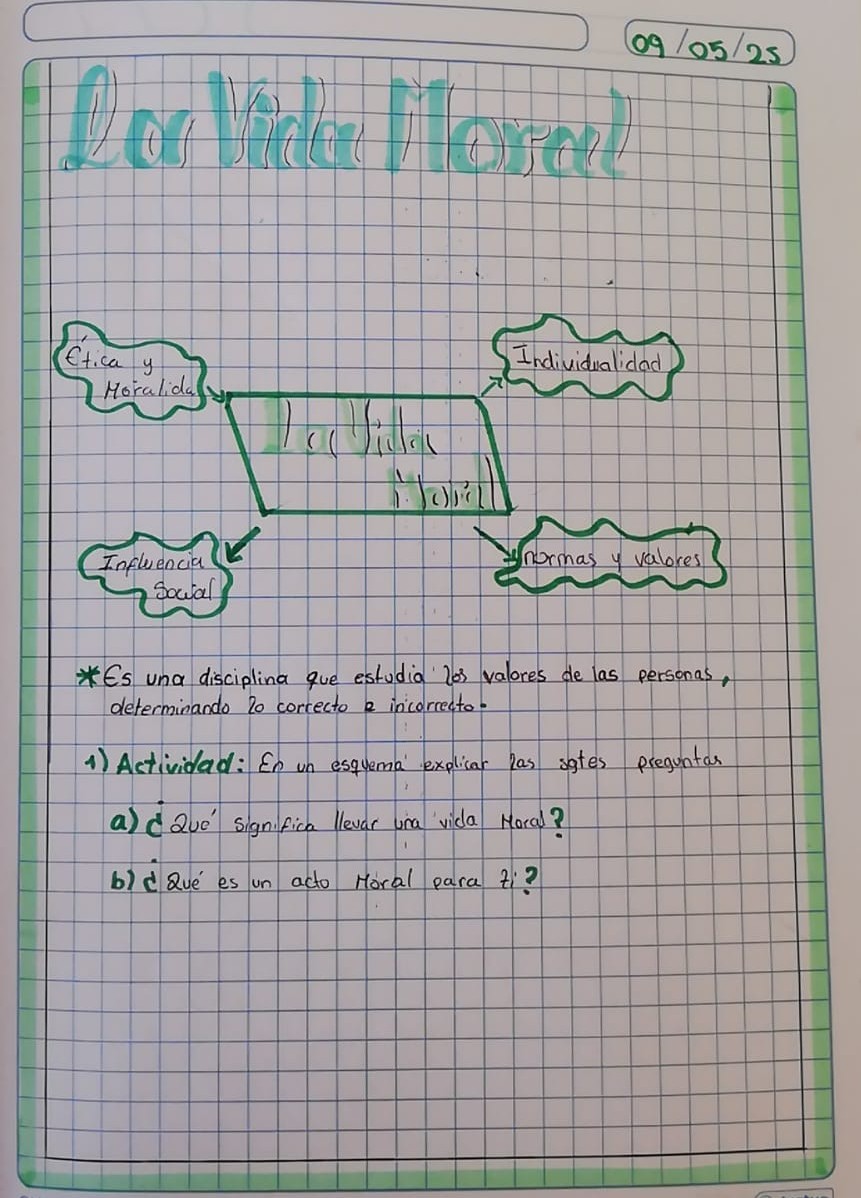 09/05/25
La Vida Moral
Ética y
Moralida
Individualidad
La Vida
Moral
Influencia
Social
normas y valores
*Es una disciplina que estudia los valores de las personas,
determinando lo correcto e incorrecto.
1) Actividad: En un esquema explicar las sgtes preguntas
a) ¿Qué significa llevar una vida Moral?
b) ¿Qué es un acto Moral para ti?